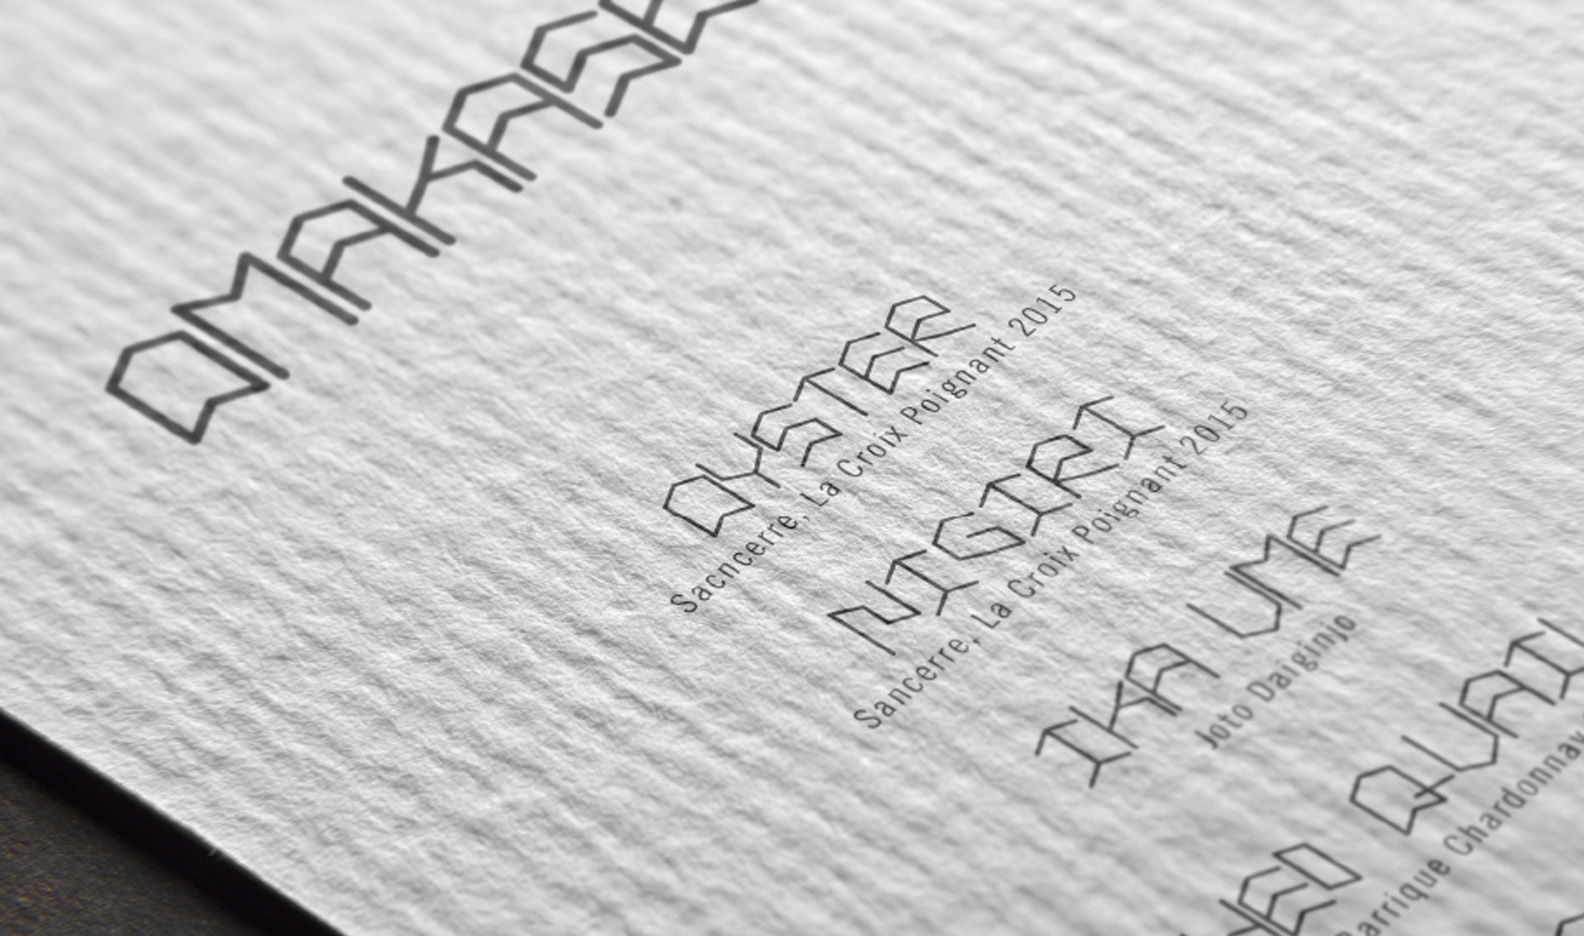 OMAKASE
OYSTER
Sacncerre, La Croix Poignant 2015
NIGIRI
Sancerre, La Croix Poignant 2015
IKA UME
Joto Daiginjo
Barrique Chardonnay